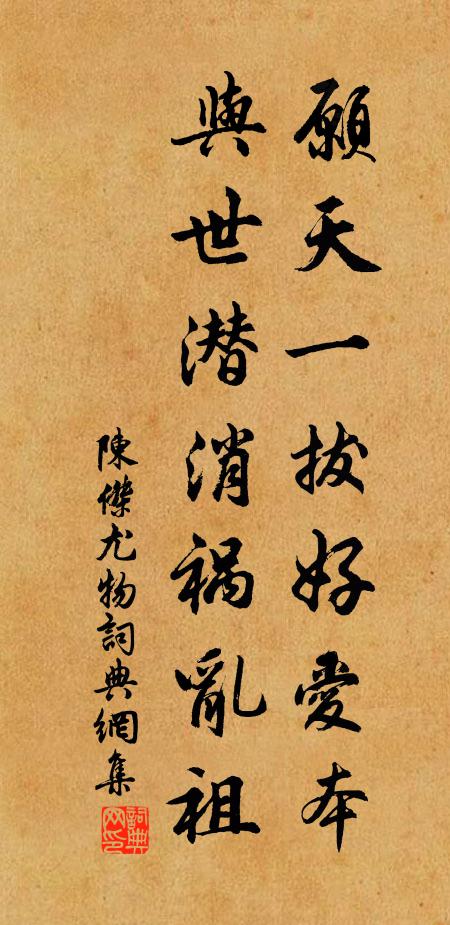 願天一拔好愛本
與世潜消祸亂祖
陳傑尤物詞典網集
詞典网印